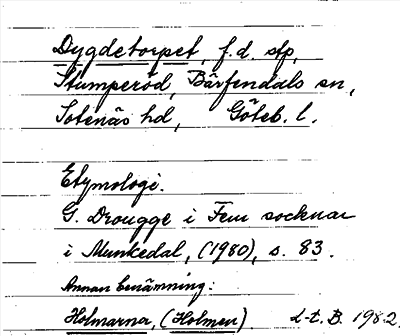 Dygdetorpet, f.d. stp,
Stumperöd, Bärfendals sn,
Sotenäs hd, Göteb. l.
Etymologi.
G. Drougge i Fem socknar
i Munkedal, (1980), s. 83.
Annan benämning:
Holmarna, (Holmen) L.t.B. 1982